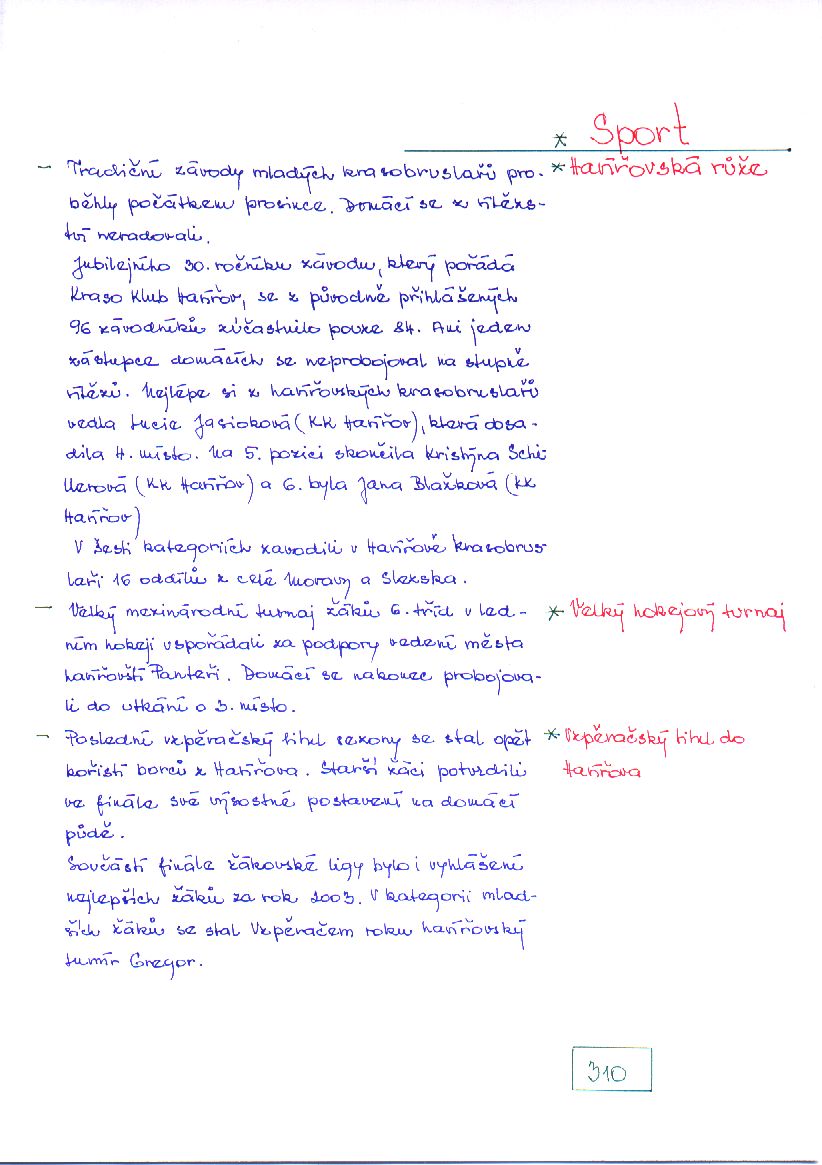 * Sport
– Tradiční závody mladých krasobruslařů pro-
* Havířovská růže
běhly počátkem prosince. Domácí se z vítězs-
tví neradovali.
Jubilejního 30. ročníku závodu, který pořádá
Kraso Klub Havířov, se z původně přihlášených
96 závodníků zúčastnilo pouze 84. Ani jeden
zástupce domácích se neprobojoval na stupně
vítězů. Nejlépe si z havířovských krasobruslařů
vedla Lucie Jasioková (KK Havířov), která obsa-
dila 4. místo. Na 5. pozici skončila Kristýna Schi
llerová (KK Havířov) a 6. byla Jana Blažková (KK
Havířov)
V šesti kategoriích závodili v Havířově krasobrus
laři 16 oddílů z celé Moravy a Slezska.
– Velký mezinárodní turnaj žáků 6. tříd v led-
* Velký hokejový turnaj
ním hokeji uspořádali za podpory vedení města
havířovští Panteři. Domácí se nakonec probojova-
li do utkání o 3. místo.
– Poslední vzpěračský titul sezony se stal opět
* Vzpěračský titul do
kořistí borců z Havířova. Starší žáci potvrdili
Havířova
ve finále své výsostné postavení na domácí
půdě.
Součástí finále žákovské ligy bylo i vyhlášení
nejlepších žáků za rok 2003. V kategorii mlad-
ších žáků se stal Vzpěračem roku havířovský
Lumír Gregor.
310